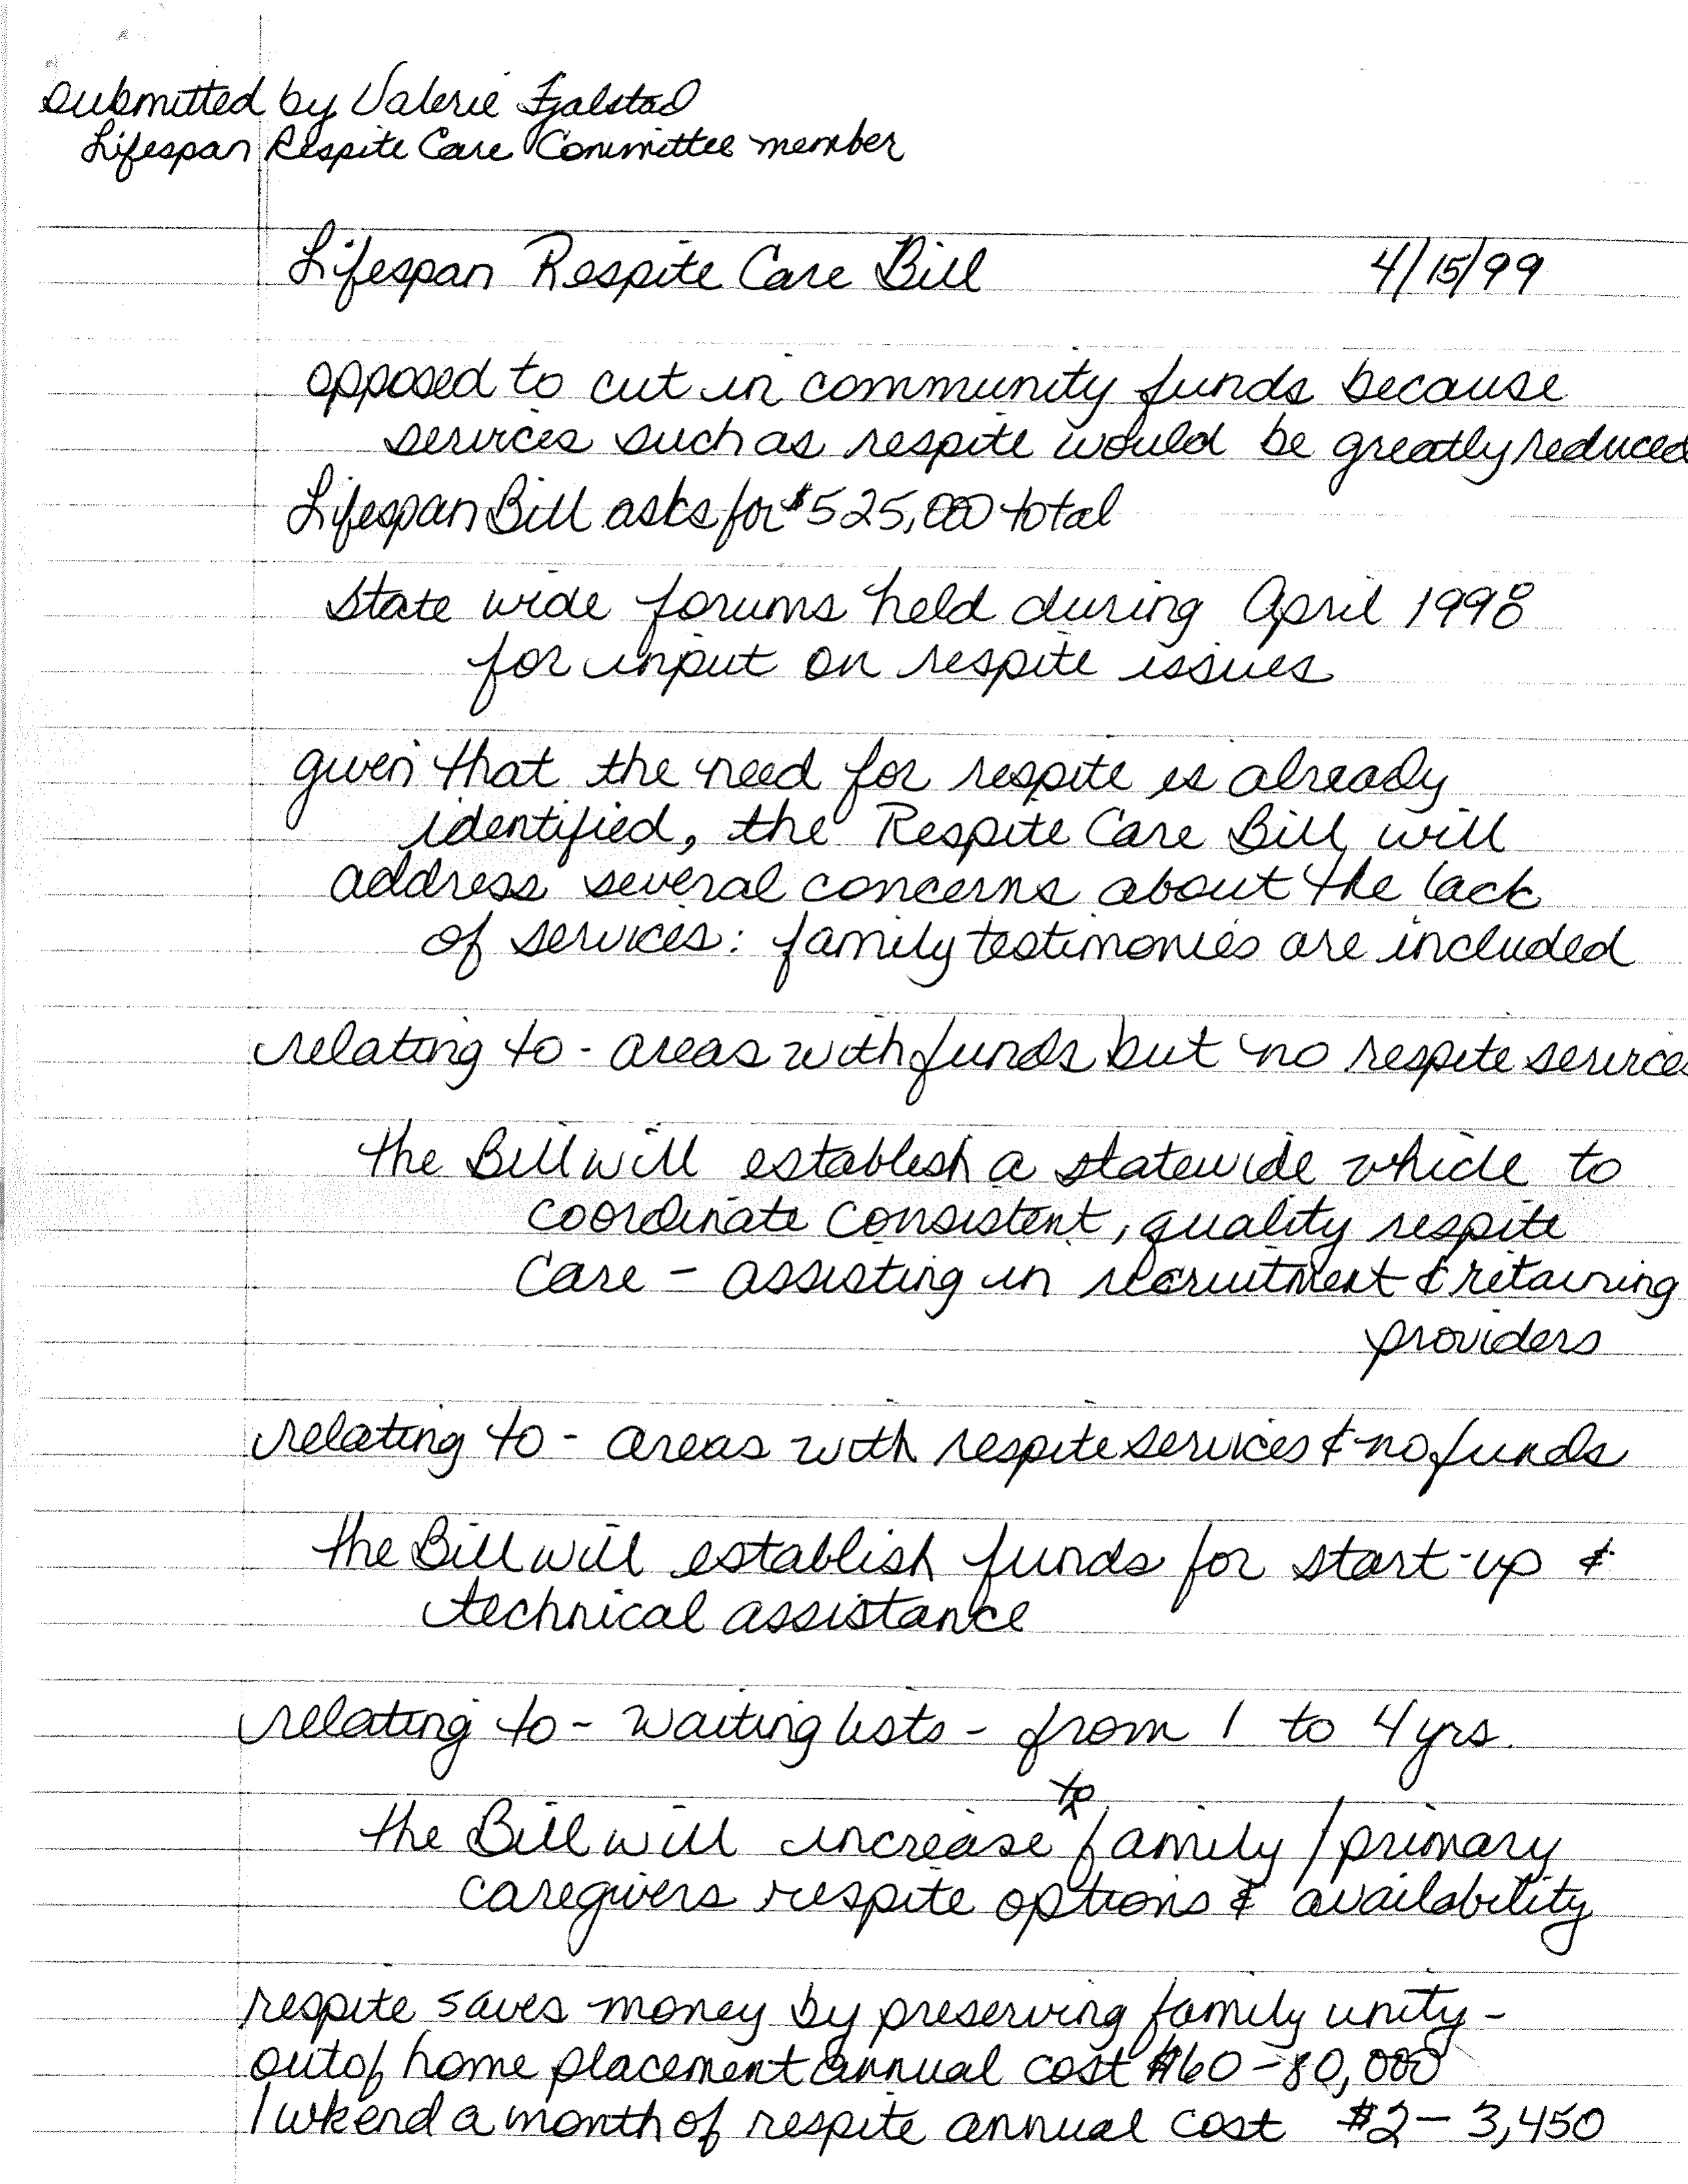 submitted by Valerie Fjalstad
Lifespan Respite Care Committee member
Lifespan Respite Care Bill 4/15/99
opposed to cut in community funds because
services such as respite would be greatly reduced
Lifespan Bill asks for $525,000 total
State wide forums held during April 1998
for input on respite issues
given that the need for respite is already
identified, the Respite Care Bill will
address several concerns about the lack
of services: family testimonies are included
relating to - areas with funds but no respite services
the Bill will establish a statewide vehicle to
coordinate consistent, quality respite
Care - assisting in recruitment & retaining
providers
relating to - areas with respite services & no funds
the Bill will establish funds for start-up &
technical assistance
relating to - waiting lists - from 1 to 4 yrs.
to
the Bill will increase family / primary
caregivers respite options & availability
respite saves money by preserving family unity -
out of home placement annual cost $60-80,000
1 wkend a month of respite annual cost $2-3,450